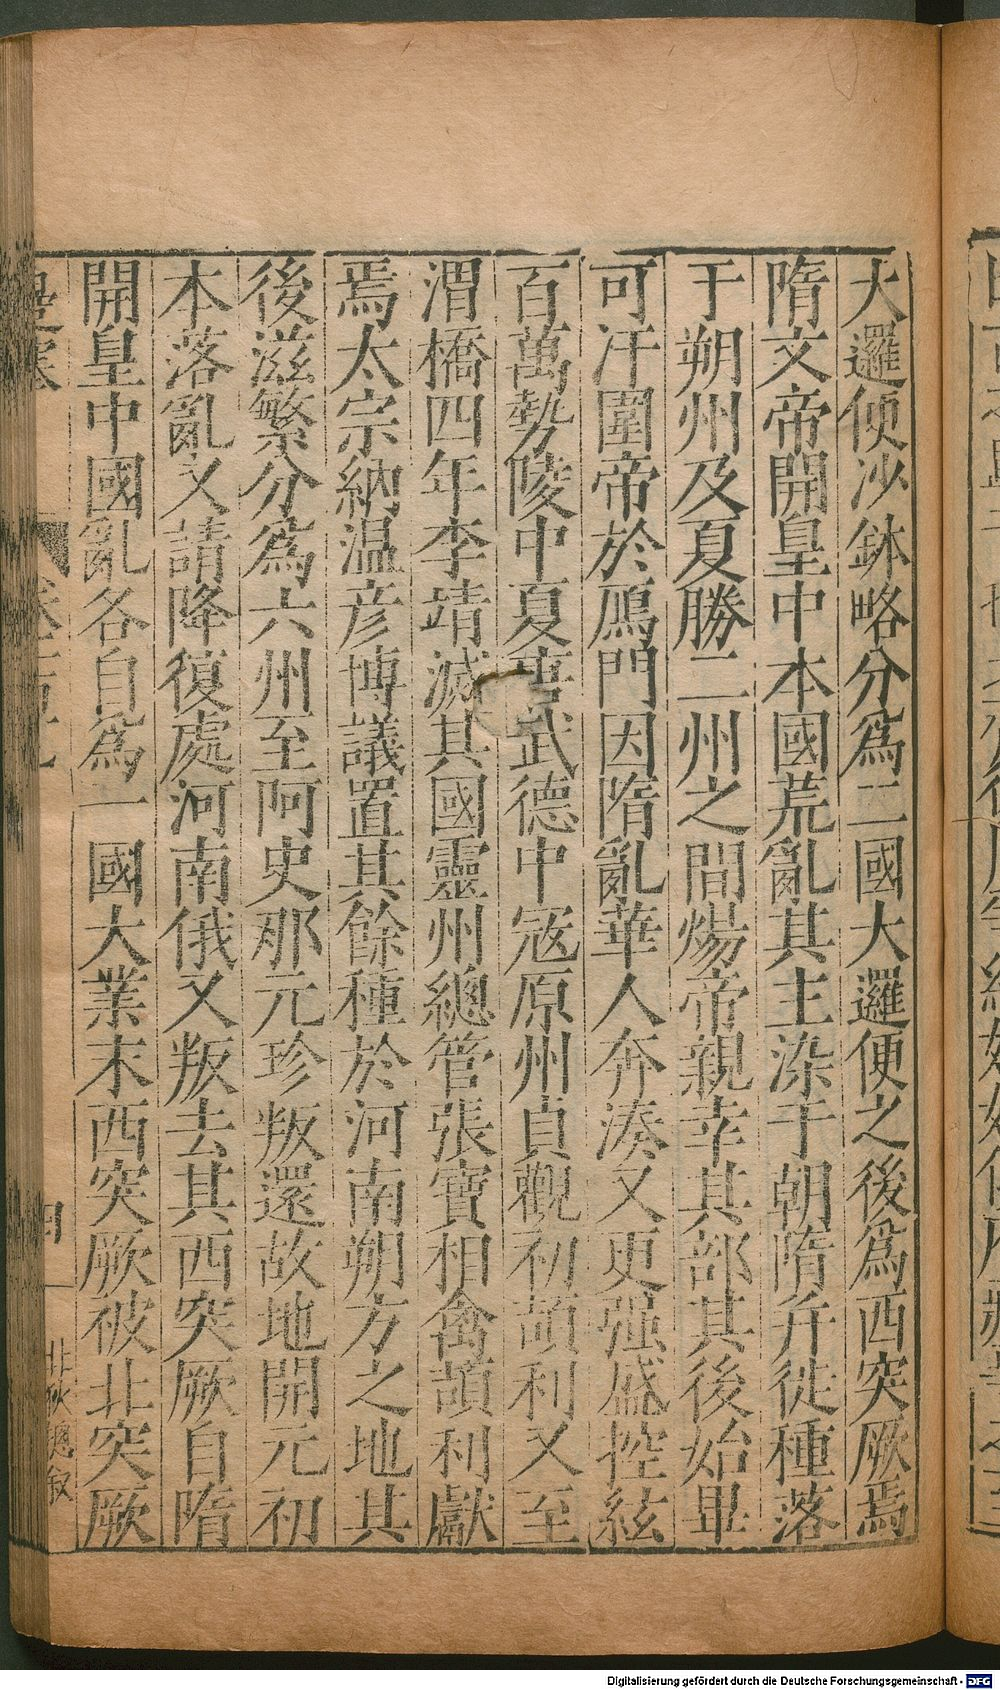 大邏便沙鉢略分為二國大邏便之後為西突厥焉
隋文帝開皇中本國荒亂其主染干朝隋幷徙種落
于朔州及夏勝二州之間煬帝親幸其部其後始畢
可汗圍帝於鴈門因隋亂華人奔湊又更强盛控絃
百萬勢陵中夏唐武德中冦原州貞觀初頡利又至
渭橋四年李靖滅其國靈州總管張寶相禽頡利獻
焉太宗納温彦博議置其餘種於河南朔方之地其
後滋繁分為六州至阿史那元珍叛還故地開元初
本落亂又請降復處河南俄又叛去其西突厥自隋
開皇中國亂各自為一國大業末西突厥被北突厥
北狄總叙
Digitalisierung gefördert durch die Deutsche Forschungsgemeinschaft - DFG